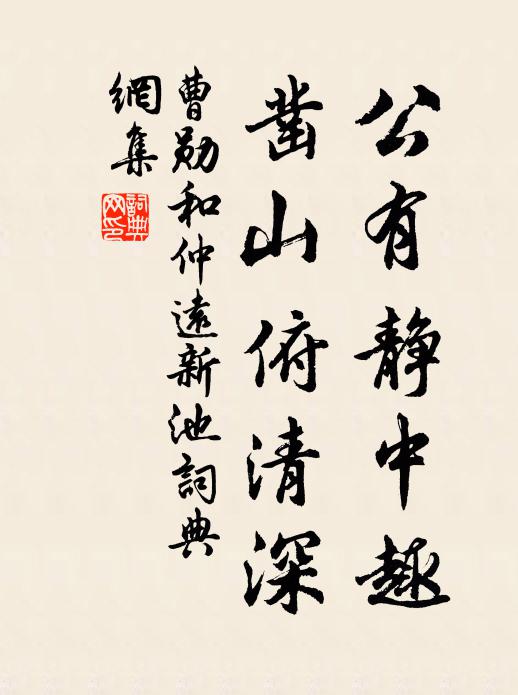 公有静中趣
凿山俯清深
曹勛和仲遠新池詞典
網集
詞典网印